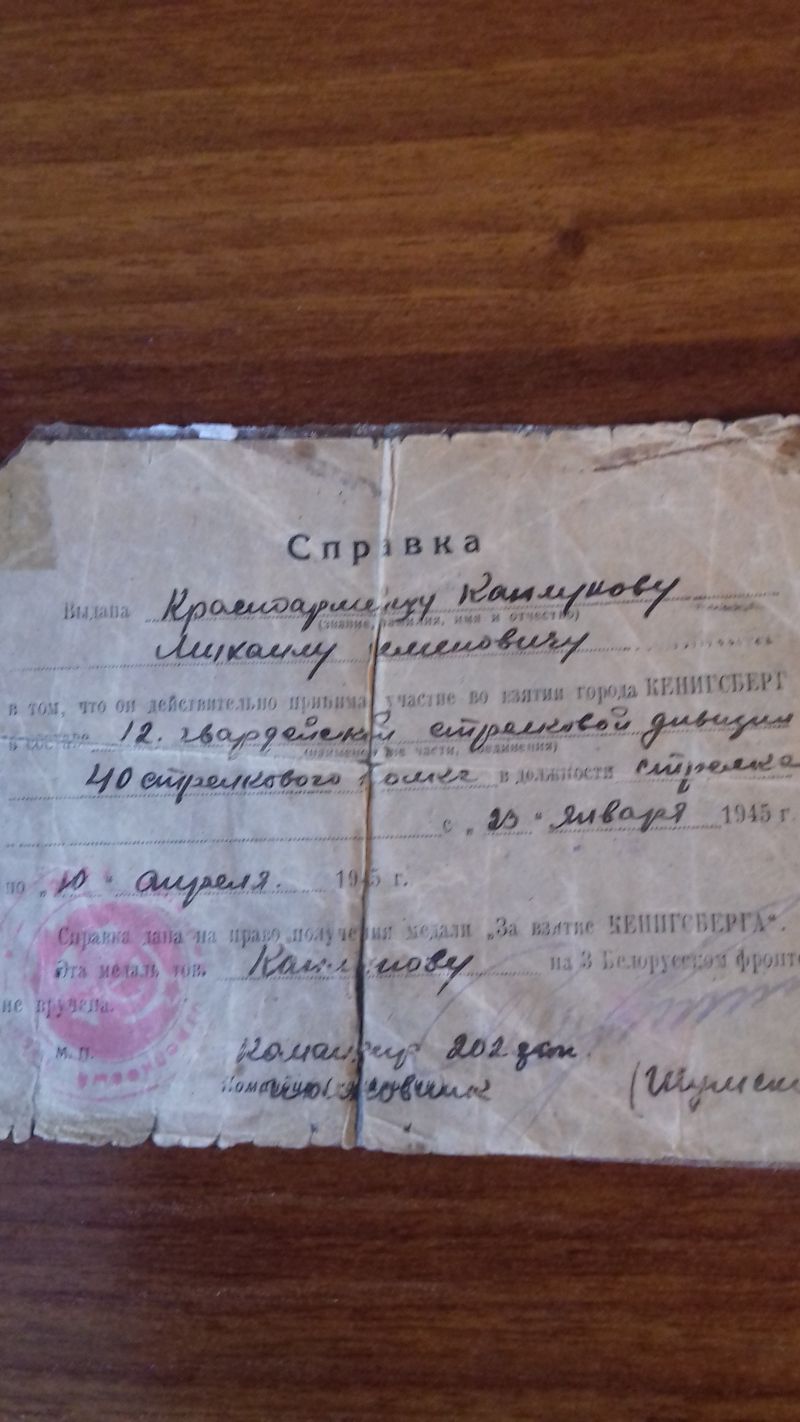 Справка
Выдана Красноармейцу Каплунову
(звание, фамилия, имя и отчество)
Михаилу Семеновичу
в том, что он действительно принимал участие во взятии города КЕНИГСБЕРГ
в составе 12. гвардейской стрелковой дивизии
(наименов-ие части, соединения)
40 стрелкового полка в должности стрелка
с „23" января 1945 г.
по „10" апреля. 1945 г.
Справка дана на право получения медали „За взятие КЕНИГСБЕРГА".
Эта медаль тов. на 3 Белорусском фронте
не вручена.
м. п.
Командир 202 зсп.
(Шумски